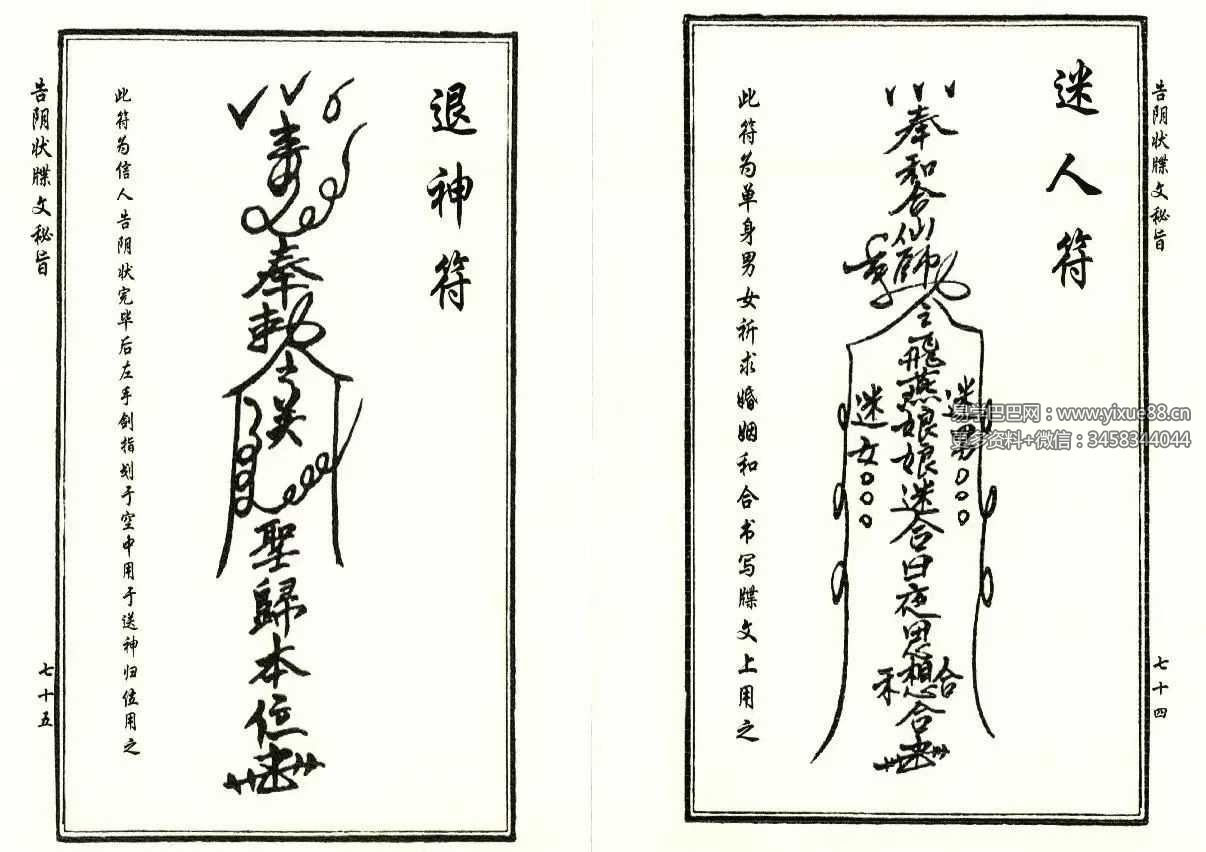 告阴状牒文秘旨
迷人符
奉和合仙师
令飛燕娘娘迷合日夜思想合
迷男
迷女
和合
此符为单身男女祈求婚姻和合书写牒文上用之
七十四
易学巴巴网：www.yixue88.cn
更多资料+微信：3458344044
退神符
奉勅
聖歸本位
此符为信人告阴状完毕后左手剑指刻于空中用于送神归位用之
告阴状牒文秘旨
七十五